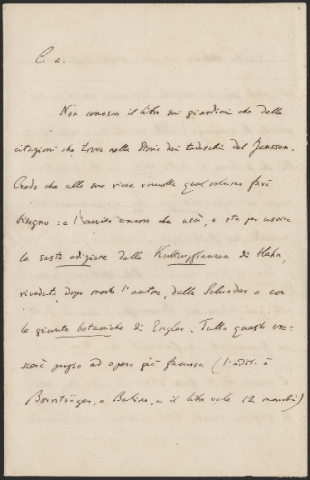 C. a.
Non conosco il libro sui giardini che dalle
citazioni che trovo nella Storia dei tedeschi del Janssen.
Credo che alle sue ricerche qualcosa farà
bisogno: e l'avviso ancora che uscì, o sta per uscire
la sesta edizione delle Kulturpflanzen di Hehn,
riveduta, dopo morto l'autore, dallo Schrader e con
le giunte botaniche di Engler. Tutto questo cre-
scerà pregio ad opera già famosa (l'edit. è
Bornträger, a Berlino, e il libro vale 12 marchi)